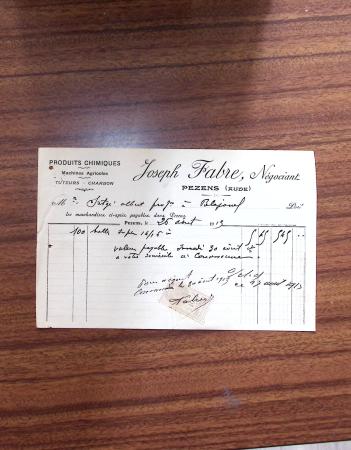 PRODUITS CHIMIQUES
Machines Agricoles
TUTEURS - CHARBON
Joseph Fabre, Négociant
PEZENS (AUDE)
M albert à Doit
les marchandises ci-après payables dans Pezens
Pezens, le 26 août 1913
100 à 5,45 545
valeur payable Samedi 30 août
a votre domicile à Carcassonne
Pour acquit
Carcassonne le 30 août 1913
ce 27 août 1913
Fabre